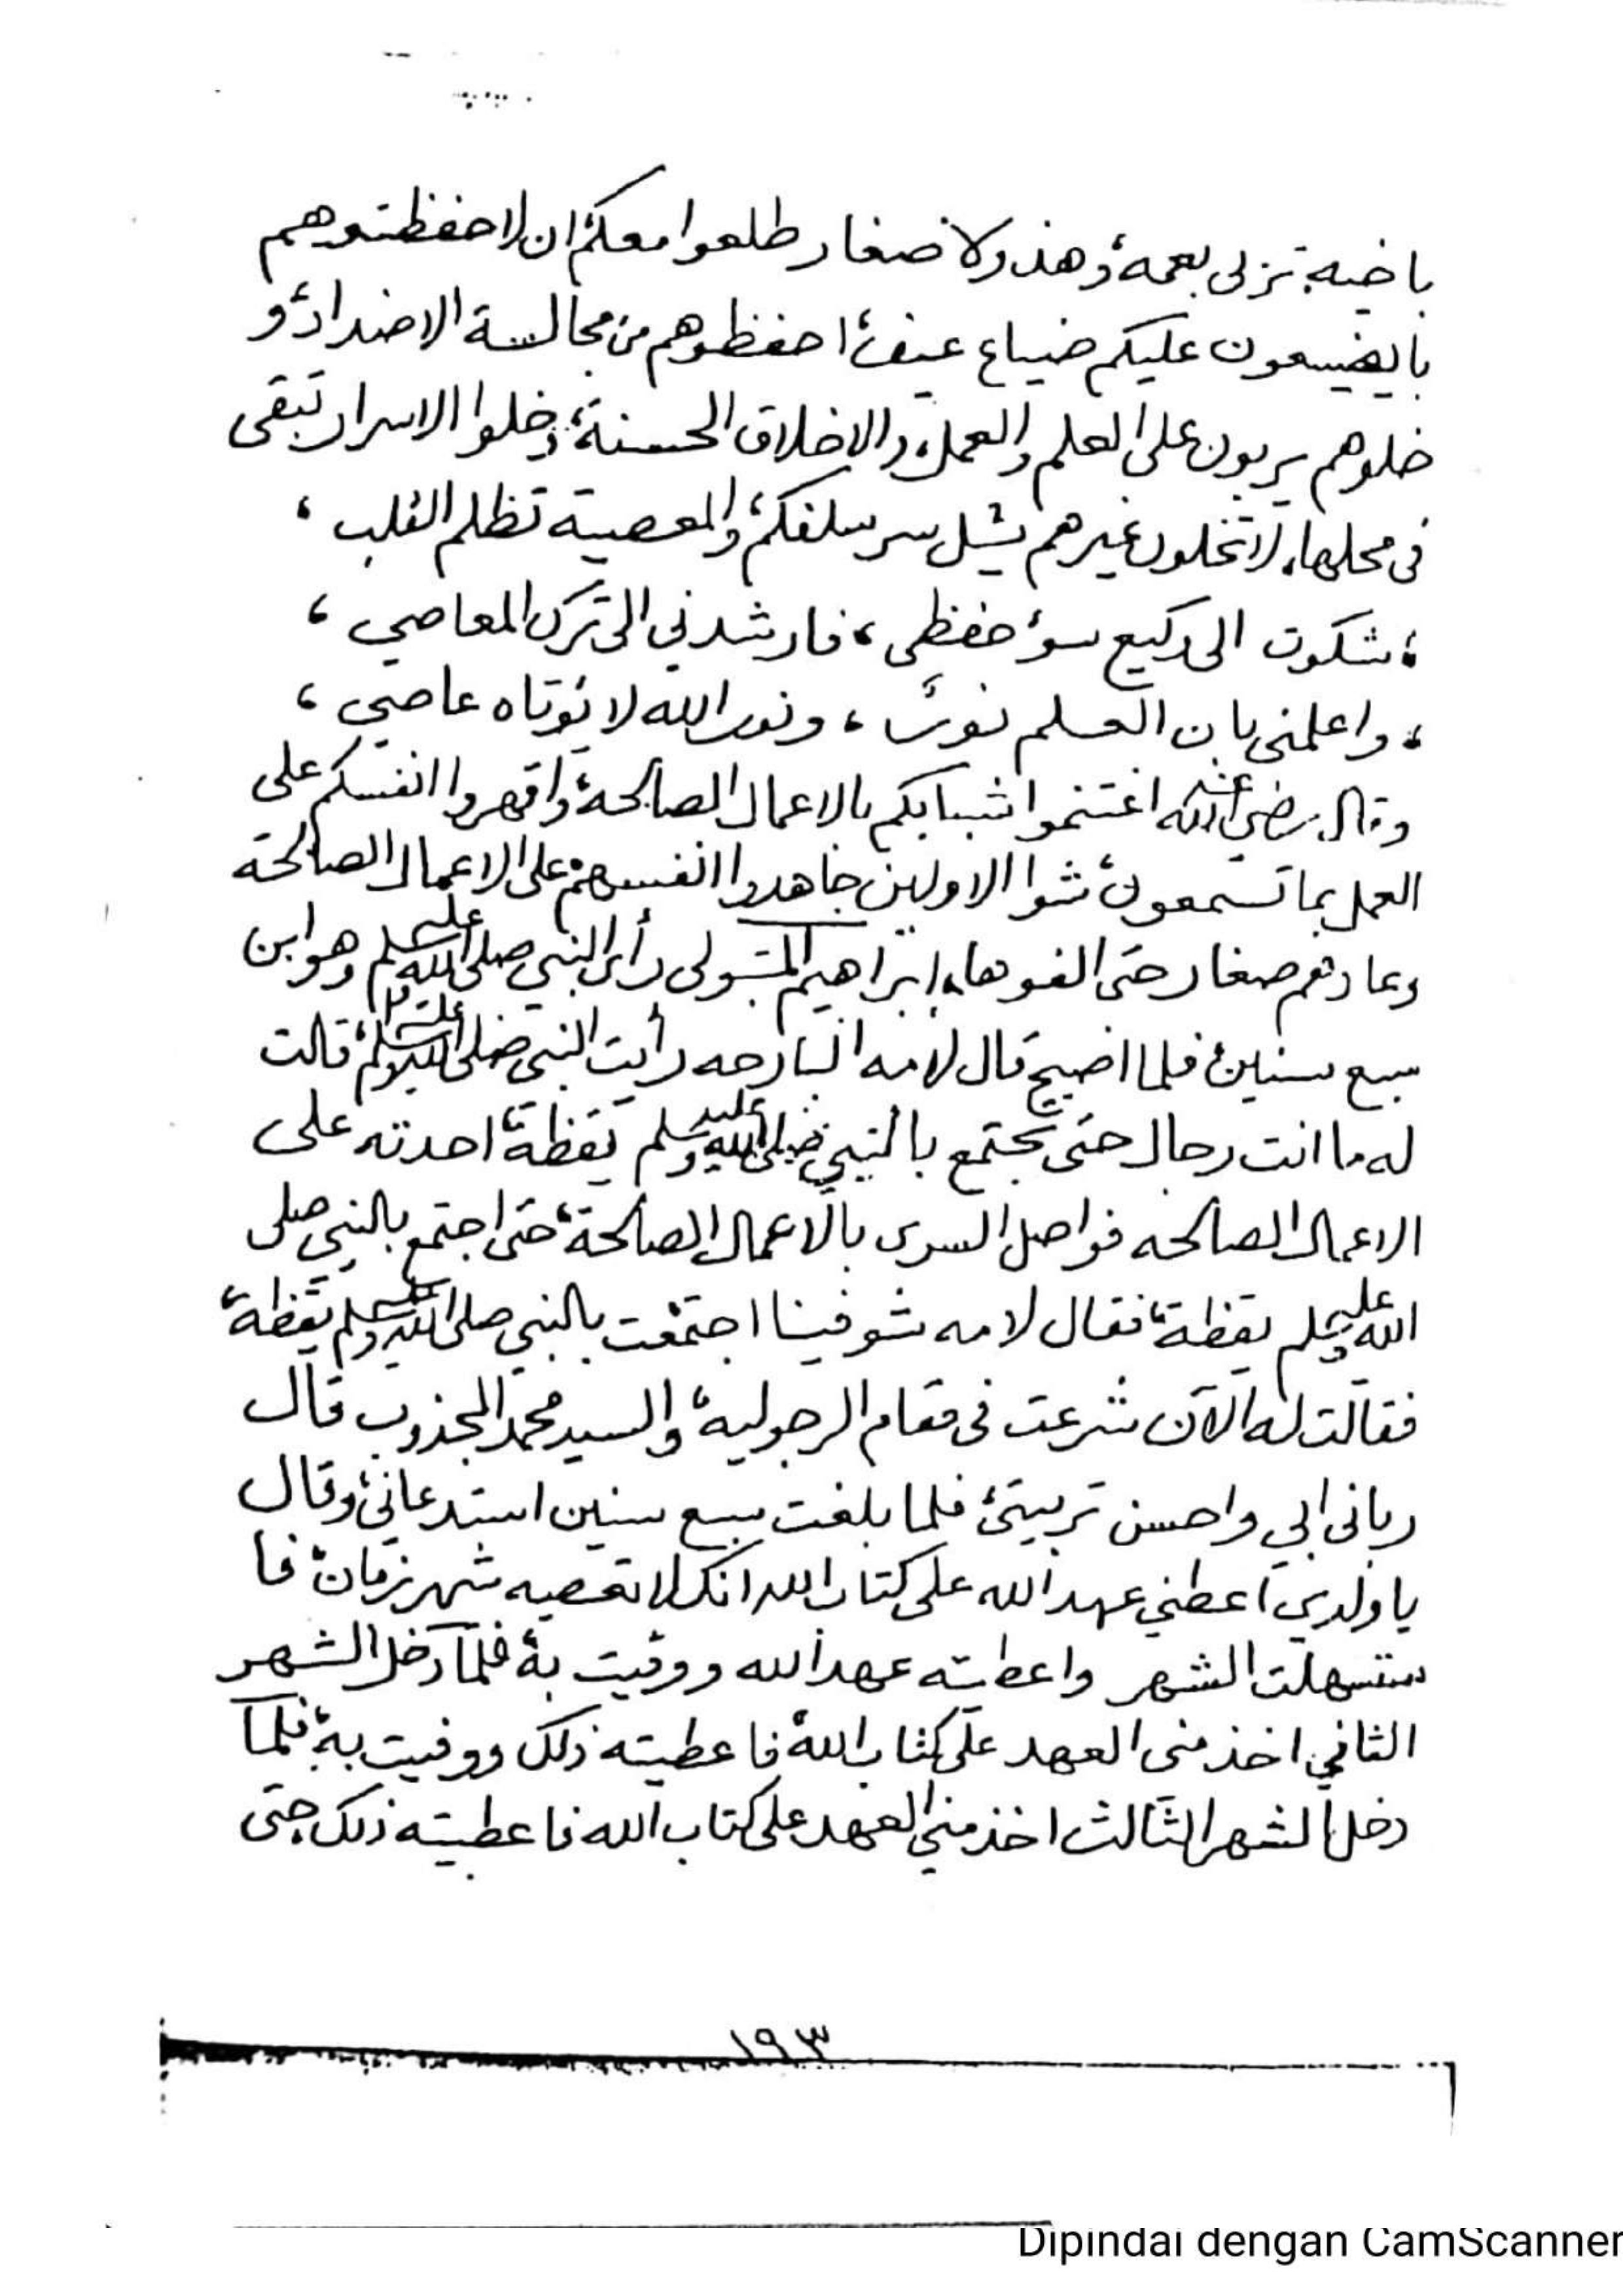 باخيه تزلى بعمه، وهذولا صغار طلعوا معكم، ان لا حفظتورهم
بايضيعون عليكم ضياع عنف، احفظوهم من مجالسة الاضداد، و
خلوهم يربون على العلم والعمل، والاخلاق الحسنة، وخلوا الاسرار تبقى
فى محلها، لا تخلون غيرهم يشل سر سلفكم، والمعصية تظلم القلب ،
، شكوت الى وكيع سوء حفظى ، فارشدني الى ترك المعاصي ،
، واعلمنى بان العلم نور ، ونور الله لا يؤتاه عاصي ،
وقال رضي الله عنه اغتنموا شبابكم بالاعمال الصالحة، واقهروا انفسكم على
العمل بما تسمعون، شوا الاولين جاهدوا انفسهم على الاعمال الصالحة
وعادهم صغار حتى الفوها، ابراهيم المتبولى رأى النبي صلى الله عليه وسلم وهو ابن
سبع سنين، فلما اصبح قال لامه البارحه رأيت النبي صلى الله عليه وسلم، قالت
له ما انت رجال حتى تجتمع بالنبي صلى الله عليه وسلم يقظة، احدته على
الاعمال الصالحه فواصل السرى بالاعمال الصالحة، حتى اجتمع بالنبي صلى
الله عليه وسلم يقظة، فقال لامه شوفينا اجتمعت بالنبي صلى الله عليه وسلم يقظة،
فقالت له الآن شرعت فى مقام الرجوليه، والسيد محمد المجذوب قال
ربانى ابي واحسن تربيتي، فلما بلغت سبع سنين استدعاني، وقال
يا ولدي اعطني عهد الله على كتاب الله انك لا تعصيه شهر زمان، فا
ستسهلت الشهر واعطيته عهد الله ووفيت به، فلما دخل الشهر
الثاني اخذ منى العهد على كتاب الله، فاعطيته ذلك ووفيت به، فلما
دخل الشهر الثالث اخذ مني العهد على كتاب الله فاعطيته ذلك حتى
١٩٣
Dipindai dengan CamScanner